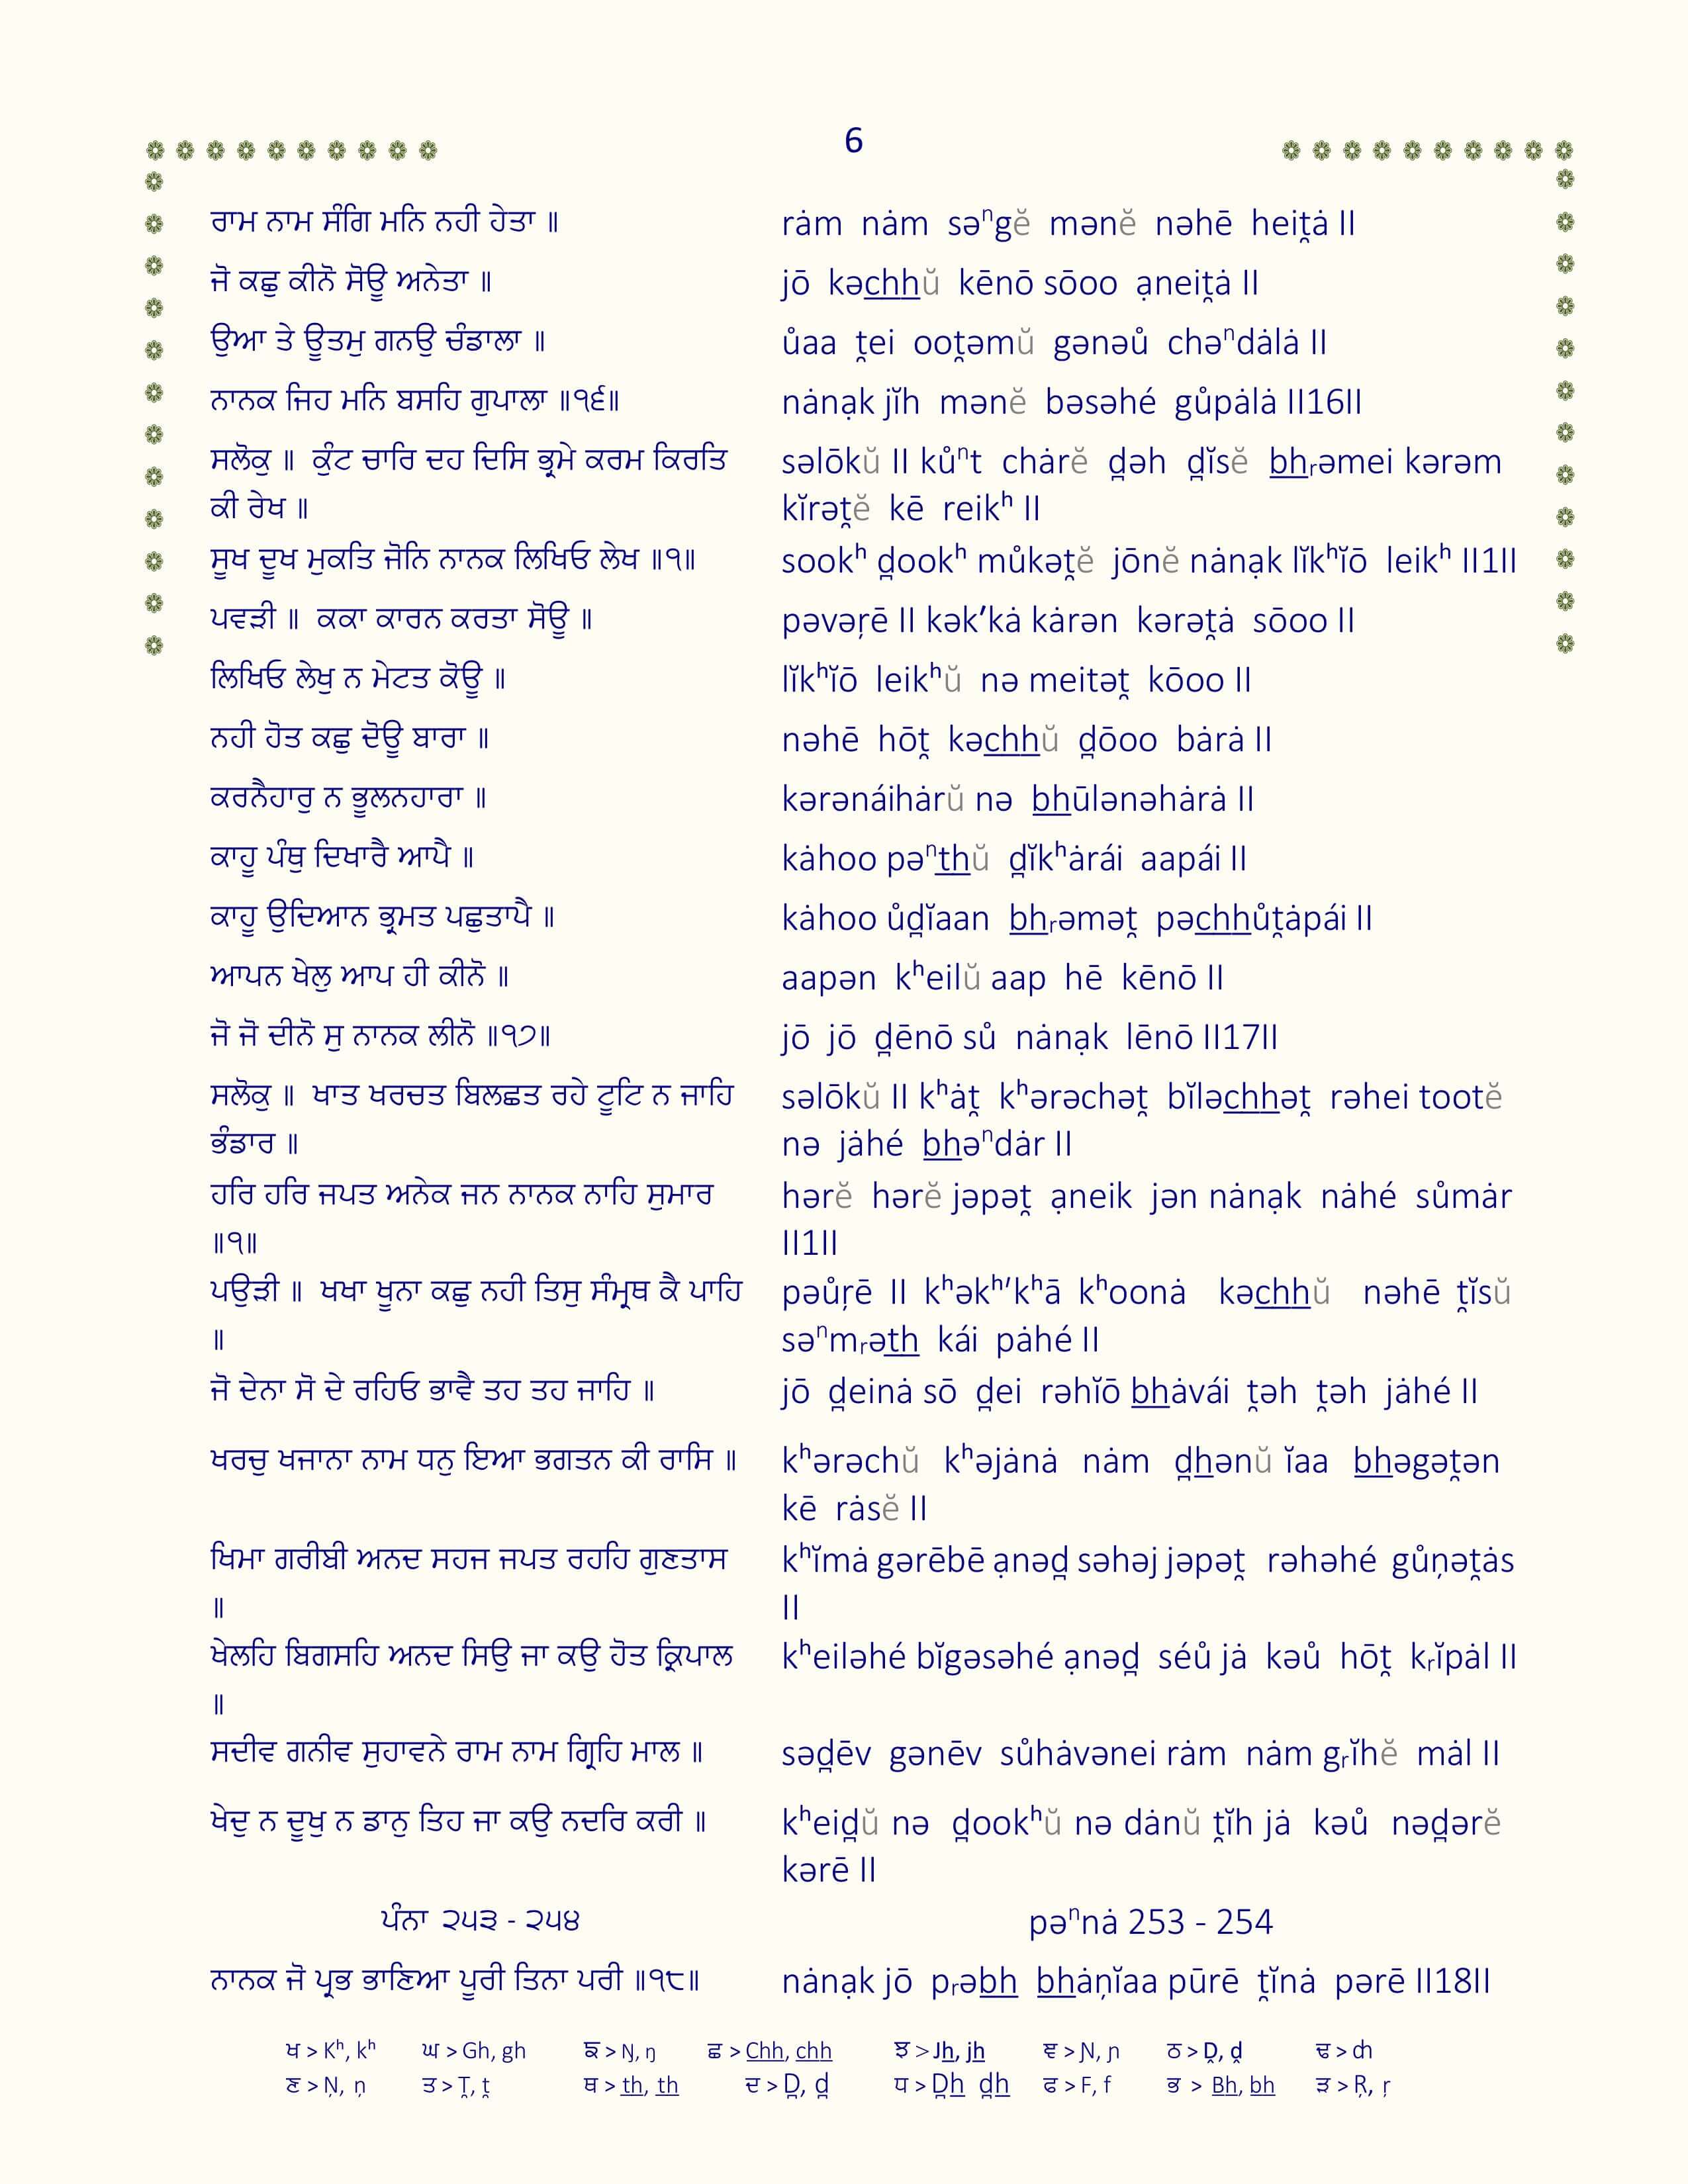 6
ਰਾਮ ਨਾਮ ਸੰਗਿ ਮਨਿ ਨਹੀ ਹੇਤਾ ॥ rȧm nȧm səⁿgĕ mənĕ nəhē heit̯ȧ II
ਜੋ ਕਛੁ ਕੀਨੋ ਸੋਊ ਅਨੇਤਾ ॥ jō kəchhŭ kēnō sōoo ạneit̯ȧ II
ਉਆ ਤੇ ਊਤਮੁ ਗਨਉ ਚੰਡਾਲਾ ॥ ůaa t̯ei oot̯əmŭ gənəů chəⁿdȧlȧ II
ਨਾਨਕ ਜਿਹ ਮਨਿ ਬਸਹਿ ਗੁਪਾਲਾ ॥੧੬॥ nȧnạk jĭh mənĕ bəsəhé gůpȧlȧ II16II
ਸਲੋਕੁ ॥ ਕੁੰਟ ਚਾਰਿ ਦਹ ਦਿਸਿ ਭ੍ਰਮੇ ਕਰਮ ਕਿਰਤਿ səlōkŭ II kůⁿt chȧrĕ d̪əh d̪ĭsĕ bhᵣəmei kərəm
ਕੀ ਰੇਖ ॥ kĭrət̯ĕ kē reikʰ II
ਸੂਖ ਦੂਖ ਮੁਕਤਿ ਜੋਨਿ ਨਾਨਕ ਲਿਖਿਓ ਲੇਖ ॥੧॥ sookʰ d̪ookʰ můkət̯ĕ jōnĕ nȧnạk lĭkʰĭō leikʰ II1II
ਪਵੜੀ ॥ ਕਕਾ ਕਾਰਨ ਕਰਤਾ ਸੋਊ ॥ pəvəŗē II kək’kȧ kȧrən kərət̯ȧ sōoo II
ਲਿਖਿਓ ਲੇਖੁ ਨ ਮੇਟਤ ਕੋਊ ॥ lĭkʰĭō leikʰŭ nə meitət̯ kōoo II
ਨਹੀ ਹੋਤ ਕਛੁ ਦੋਊ ਬਾਰਾ ॥ nəhē hōt̯ kəchhŭ d̪ōoo bȧrȧ II
ਕਰਨੈਹਾਰੁ ਨ ਭੂਲਨਹਾਰਾ ॥ kərənáihȧrŭ nə bhūlənəhȧrȧ II
ਕਾਹੂ ਪੰਥੁ ਦਿਖਾਰੈ ਆਪੈ ॥ kȧhoo pəⁿthŭ d̪ĭkʰȧrái aapái II
ਕਾਹੂ ਉਦਿਆਨ ਭ੍ਰਮਤ ਪਛੁਤਾਪੈ ॥ kȧhoo ůd̪ĭaan bhᵣəmət̯ pəchhůt̯ȧpái II
ਆਪਨ ਖੇਲੁ ਆਪ ਹੀ ਕੀਨੋ ॥ aapən kʰeilŭ aap hē kēnō II
ਜੋ ਜੋ ਦੀਨੋ ਸੁ ਨਾਨਕ ਲੀਨੋ ॥੧੭॥ jō jō d̪ēnō sů nȧnạk lēnō II17II
ਸਲੋਕੁ ॥ ਖਾਤ ਖਰਚਤ ਬਿਲਛਤ ਰਹੇ ਟੂਟਿ ਨ ਜਾਹਿ səlōkŭ II kʰȧt̯ kʰərəchət̯ bĭləchhət̯ rəhei tootĕ
ਭੰਡਾਰ ॥ nə jȧhé bhəⁿdȧr II
ਹਰਿ ਹਰਿ ਜਪਤ ਅਨੇਕ ਜਨ ਨਾਨਕ ਨਾਹਿ ਸੁਮਾਰ hərĕ hərĕ jəpət̯ ạneik jən nȧnạk nȧhé sůmȧr
॥੧॥ II1II
ਪਉੜੀ ॥ ਖਖਾ ਖੂਨਾ ਕਛੁ ਨਹੀ ਤਿਸੁ ਸੰਮ੍ਰਥ ਕੈ ਪਾਹਿ pəůŗē II kʰəkʰ’kʰā kʰoonȧ kəchhŭ nəhē t̯ĭsŭ
॥ səⁿmᵣəth kái pȧhé II
ਜੋ ਦੇਨਾ ਸੋ ਦੇ ਰਹਿਓ ਭਾਵੈ ਤਹ ਤਹ ਜਾਹਿ ॥ jō d̪einȧ sō d̪ei rəhĭō bhȧvái t̯əh t̯əh jȧhé II
ਖਰਚੁ ਖਜਾਨਾ ਨਾਮ ਧਨੁ ਇਆ ਭਗਤਨ ਕੀ ਰਾਸਿ ॥ kʰərəchŭ kʰəjȧnȧ nȧm d̪hənŭ ĭaa bhəgət̯ən
kē rȧsĕ II
ਖਿਮਾ ਗਰੀਬੀ ਅਨਦ ਸਹਜ ਜਪਤ ਰਹਹਿ ਗੁਣਤਾਸ kʰĭmȧ gərēbē ạnəd̪ səhəj jəpət̯ rəhəhé gůņət̯ȧs
॥ II
ਖੇਲਹਿ ਬਿਗਸਹਿ ਅਨਦ ਸਿਉ ਜਾ ਕਉ ਹੋਤ ਕ੍ਰਿਪਾਲ kʰeiləhé bĭgəsəhé ạnəd̪ séů jȧ kəů hōt̯ kᵣĭpȧl II
॥
ਸਦੀਵ ਗਨੀਵ ਸੁਹਾਵਨੇ ਰਾਮ ਨਾਮ ਗ੍ਰਿਹਿ ਮਾਲ ॥ səd̪ēv gənēv sůhȧvənei rȧm nȧm gᵣĭhĕ mȧl II
ਖੇਦੁ ਨ ਦੂਖੁ ਨ ਡਾਨੁ ਤਿਹ ਜਾ ਕਉ ਨਦਰਿ ਕਰੀ ॥ kʰeid̪ŭ nə d̪ookʰŭ nə dȧnŭ t̯ĭh jȧ kəů nəd̪ərĕ
kərē II
ਪੰਨਾ ੨੫੩ - ੨੫੪ pəⁿnȧ 253 - 254
ਨਾਨਕ ਜੋ ਪ੍ਰਭ ਭਾਣਿਆ ਪੂਰੀ ਤਿਨਾ ਪਰੀ ॥੧੮॥ nȧnạk jō pᵣəbh bhȧņĭaa pūrē t̯ĭnȧ pərē II18II
ਖ > Kʰ, kʰ ਘ > Gh, gh ਙ > Ŋ, ŋ ਛ > Chh, chh ਝ > Jh, jh ਞ > Ɲ, ɲ ਠ > D̯, d̯ ਢ > ȸ
ਣ > Ņ, ņ ਤ > T̯, t̯ ਥ > th, th ਦ > D̪, d̪ ਧ > D̪h d̪h ਫ > F, f ਭ > Bh, bh ੜ > Ŗ, ŗ